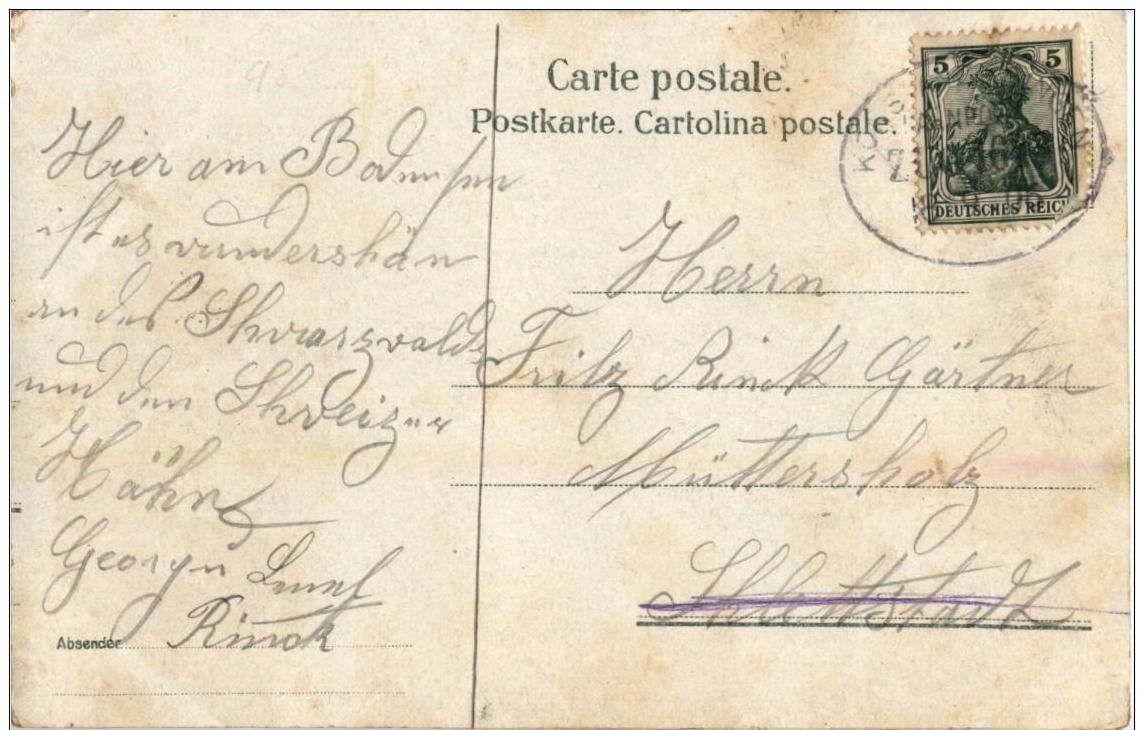 Carte postale.
Postkarte. Cartolina postale.
5 5
DEUTSCHES REICH
Hier am Bodensen
ist es vundershän
an des Shvarzvalds
und den Shveizer
Hähn
Georg
Rinck
Absender
Herrn
Fritz Rinck Gärtner
Müttersholz
Shlettstadt